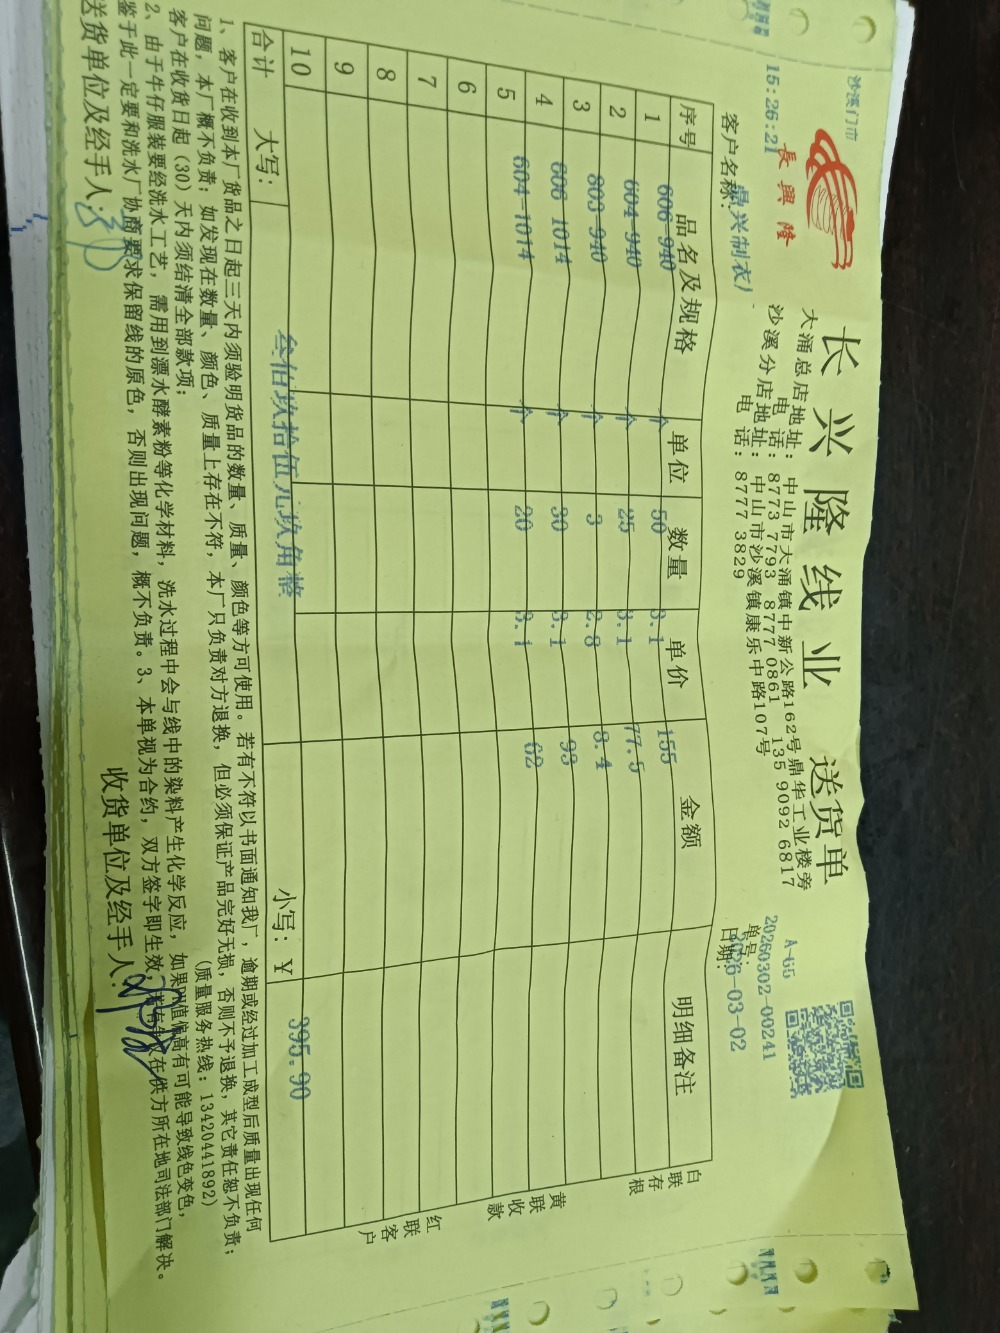 沙溪门市
15:26:21
長興隆
长兴隆线业 送货单
大涌总店地址：中山市大涌镇中新公路162号鼎华工业楼旁
电话：8773 7793 8777 0861 135 9092 6817
沙溪分店地址：中山市沙溪镇康乐中路107号
电话：8777 3829
A-G5
单号：20260302-00241
日期：2026-03-02
客户名称：鼎兴制衣厂
序号 品名及规格 单位 数量 单价 金额 明细备注
1 606-940 个 50 3.1 155
2 604-940 个 25 3.1 77.5
3 803-940 个 3 2.8 8.4
4 606-1014 个 30 3.1 93
5 604-1014 个 20 3.1 62
6
7
8
9
10
合计 大写：叁佰玖拾伍元玖角整 小写：￥ 395.90
白联存根
黄联收款
红联客户
1、客户在收到本厂货品之日起三天内须验明货品的数量、质量、颜色等方可使用。若有不符以书面通知我厂，逾期或经过加工成型后质量出现任何
问题，本厂概不负责；如发现在数量、颜色、质量上存在不符，本厂只负责对方退换，但必须保证产品完好无损，否则不予退换，其它责任恕不负责；
客户在收货日起（30）天内须结清全部款项； （质量服务热线：13420441892）
2、由于牛仔服装要经洗水工艺，需用到漂水酵素粉等化学材料，洗水过程中会与线中的染料产生化学反应，如果PH值偏高有可能导致线色变色，
鉴于此一定要和洗水厂协商要求保留线的原色，否则出现问题，概不负责。3、本单视为合约，双方签字即生效，在供方所在地司法部门解决。
送货单位及经手人： 收货单位及经手人：